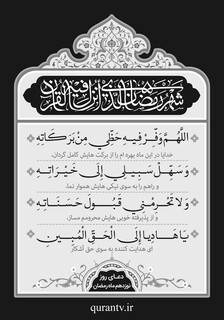 شهر رمضان الذی انزل فیه القرآن
اللَّهُمَّ وَفِّرْ فِيهِ حَظِّي مِنْ بَرَكَاتِهِ
خدایا در این ماه بهره ام را از برکت هایش کامل گردان،
وَ سَهِّلْ سَبِيلِي إِلَى خَيْرَاتِهِ
و راهم را به سوی نیکی هایش هموار نما،
وَ لَا تَحْرِمْنِي قَبُولَ حَسَنَاتِهِ
و از پذیرفتهٔ خوبی هایش محرومم مساز،
يَا هَادِياً إِلَى الْحَقِّ الْمُبِينِ
ای هدایت کننده به سوی حق آشکار
دعای روز
نوزدهم ماه رمضان
qurantv.ir